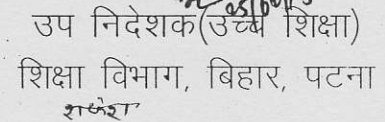 उप निदेशक(उच्च शिक्षा)
शिक्षा विभाग, बिहार, पटना
राकेश